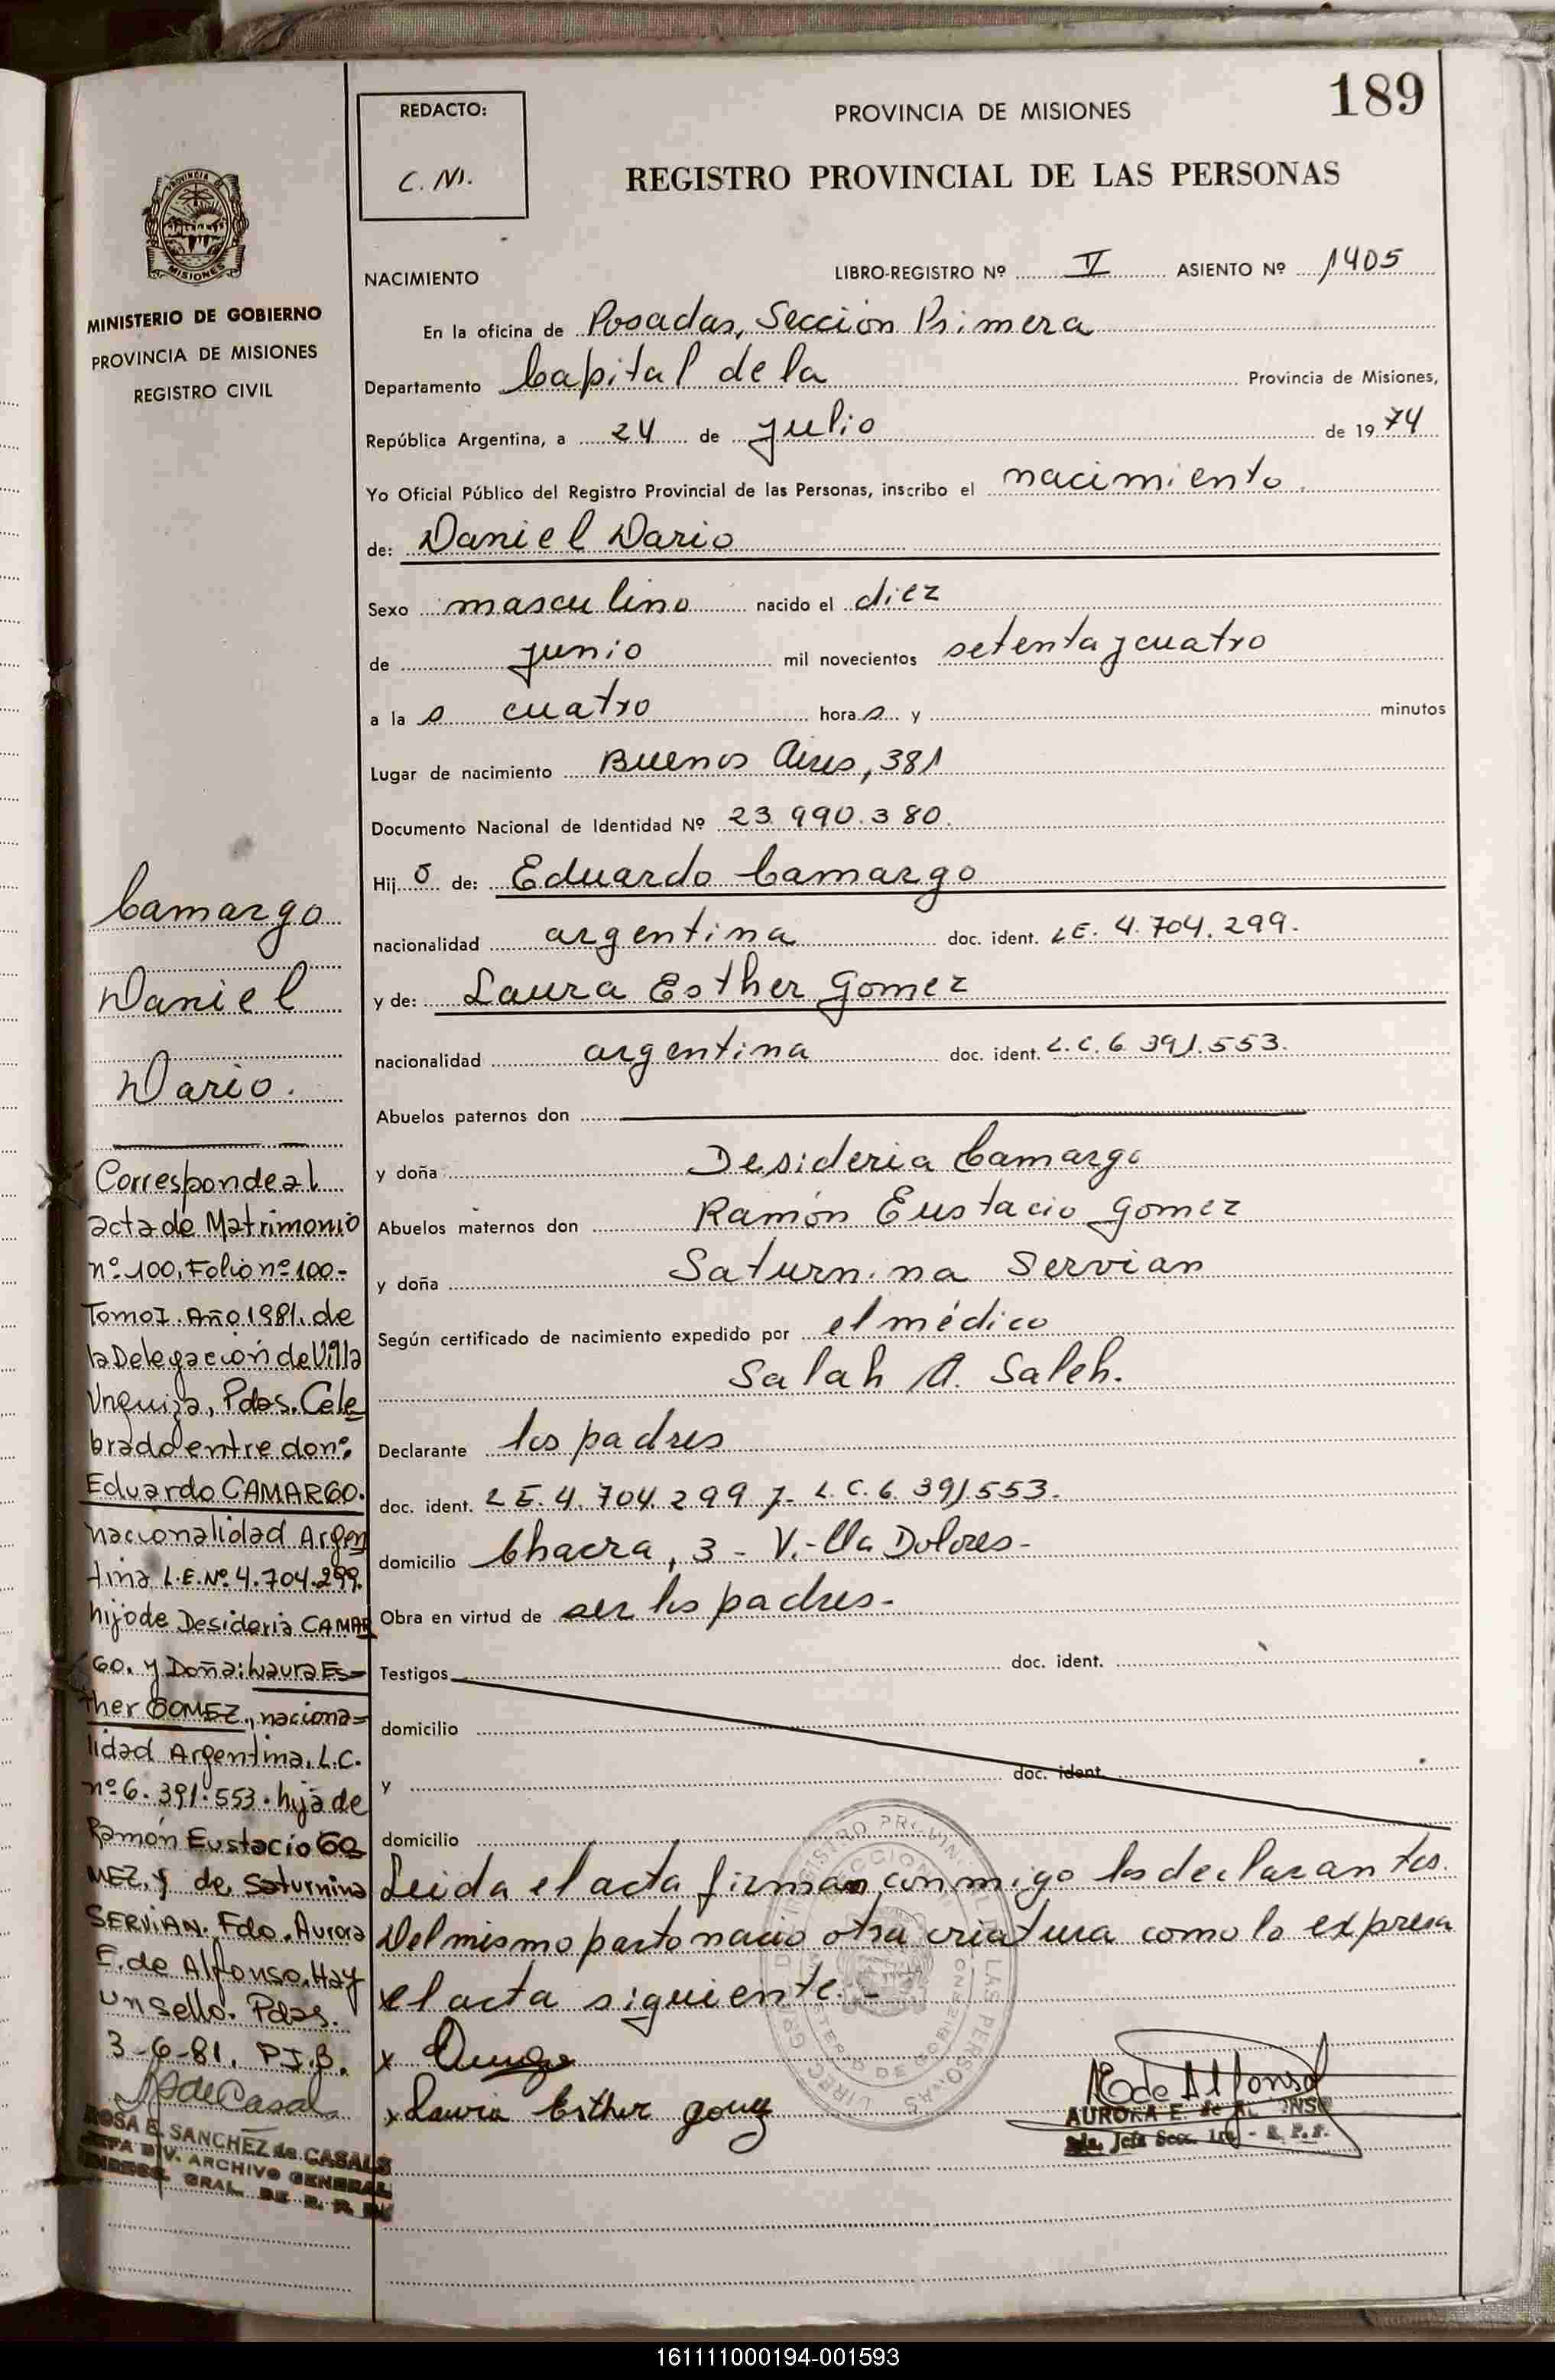 189
REDACTO:
C. M.
PROVINCIA DE MISIONES
REGISTRO PROVINCIAL DE LAS PERSONAS
PROVINCIA DE
MISIONES
MINISTERIO DE GOBIERNO
PROVINCIA DE MISIONES
REGISTRO CIVIL
NACIMIENTO
LIBRO-REGISTRO Nº V ASIENTO Nº 1405
En la oficina de Posadas, Sección Primera
Departamento Capital de la Provincia de Misiones,
República Argentina, a 24 de julio de 1974
Yo Oficial Público del Registro Provincial de las Personas, inscribo el nacimiento
de: Daniel Dario
Sexo masculino nacido el diez
de junio mil novecientos setenta y cuatro
a las cuatro horas y minutos
Lugar de nacimiento Buenos Aires, 381
Documento Nacional de Identidad Nº 23.990.380.
Hijo de: Eduardo Camargo
nacionalidad argentina doc. ident. L.E. 4.704.299.
y de: Laura Esther Gomez
nacionalidad argentina doc. ident. L.C. 6.391.553.
Abuelos paternos don
y doña Desideria Camargo
Abuelos maternos don Ramón Eustacio Gomez
y doña Saturnina Servian
Según certificado de nacimiento expedido por el médico
Salah A. Saleh.
Declarante los padres
doc. ident. L.E. 4.704.299 y L.C. 6.391.553.
domicilio Chacra, 3 - Villa Dolores-
Obra en virtud de ser los padres-
Testigos doc. ident.
domicilio
y doc. ident.
domicilio
Leida el acta firman conmigo los declarantes.
Del mismo parto nacio otra criatura como lo expresa
el acta siguiente.-
x
x Laura Esther Gomez
AEde Alfonso
AURORA E. de ALFONSO
Jefa Secc. 1ra - R. P. P.
Camargo
Daniel
Dario.
Corresponde al
acta de Matrimonio
nº 100, Folio nº 100-
Tomo I. Año 1981. de
la Delegación de Villa
Urquiza, Pdas. Cele
brado entre don:
Eduardo CAMARGO.
nacionalidad Argen
tina L.E. Nº 4.704.299.
hijo de Desideria CAMAR
GO. y Doña: Laura Es=
ther GOMEZ, naciona=
lidad Argentina. L.C.
nº 6.391.553. hija de
Ramón Eustacio GO
MEZ. y de Saturnina
SERVIAN. Fdo. Aurora
E. de Alfonso. Hay
un sello. Pdas.
3-6-81. P.J.B.
de Casals
ROSA E. SANCHEZ de CASALS
JEFA DIV. ARCHIVO GENERAL
DIRECC. GRAL. DE R. P. P.
161111000194-001593